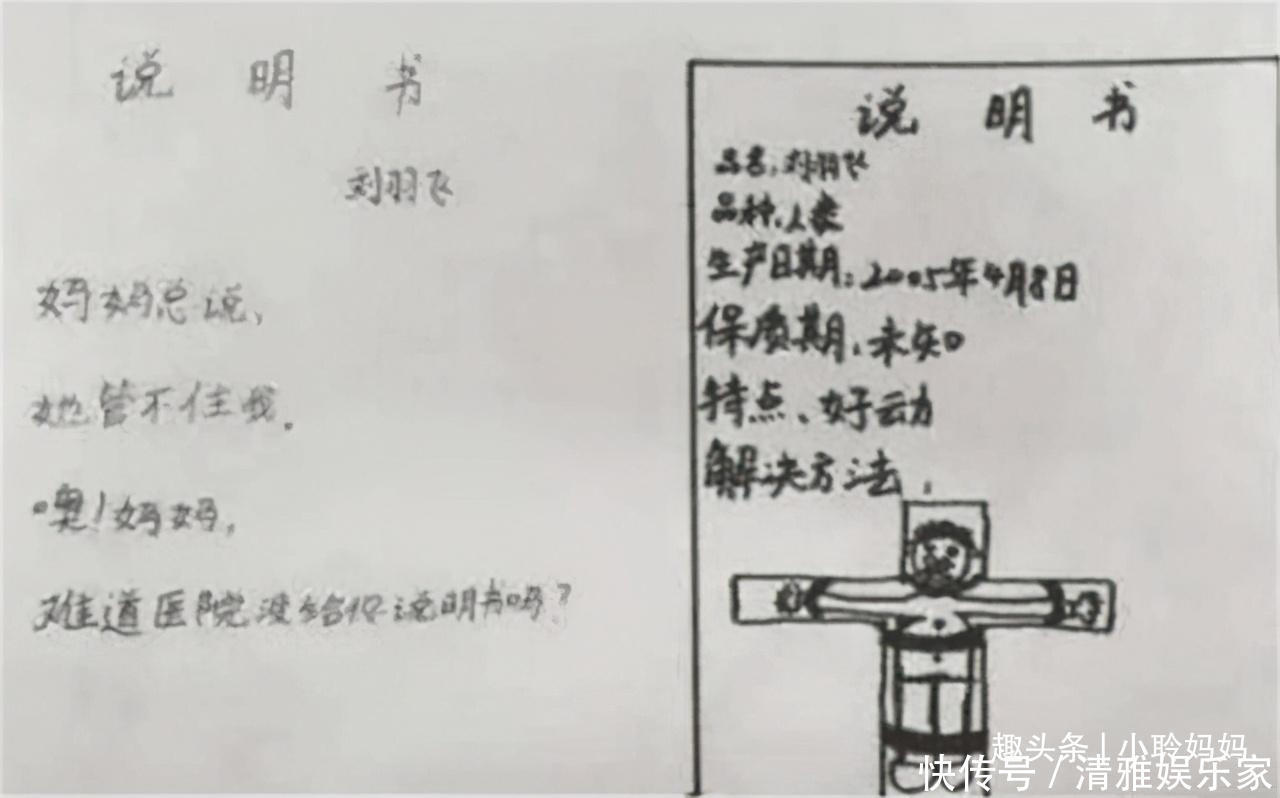 说明书
刘羽飞
妈妈总说,
她管不住我。
噢!妈妈,
难道医院没给你说明书吗?
说明书
品名:刘羽飞
品种:人类
生产日期:2005年4月8日
保质期:未知
特点:好动
解决方法:
趣头条|小聆妈妈
快传号/清雅娱乐家